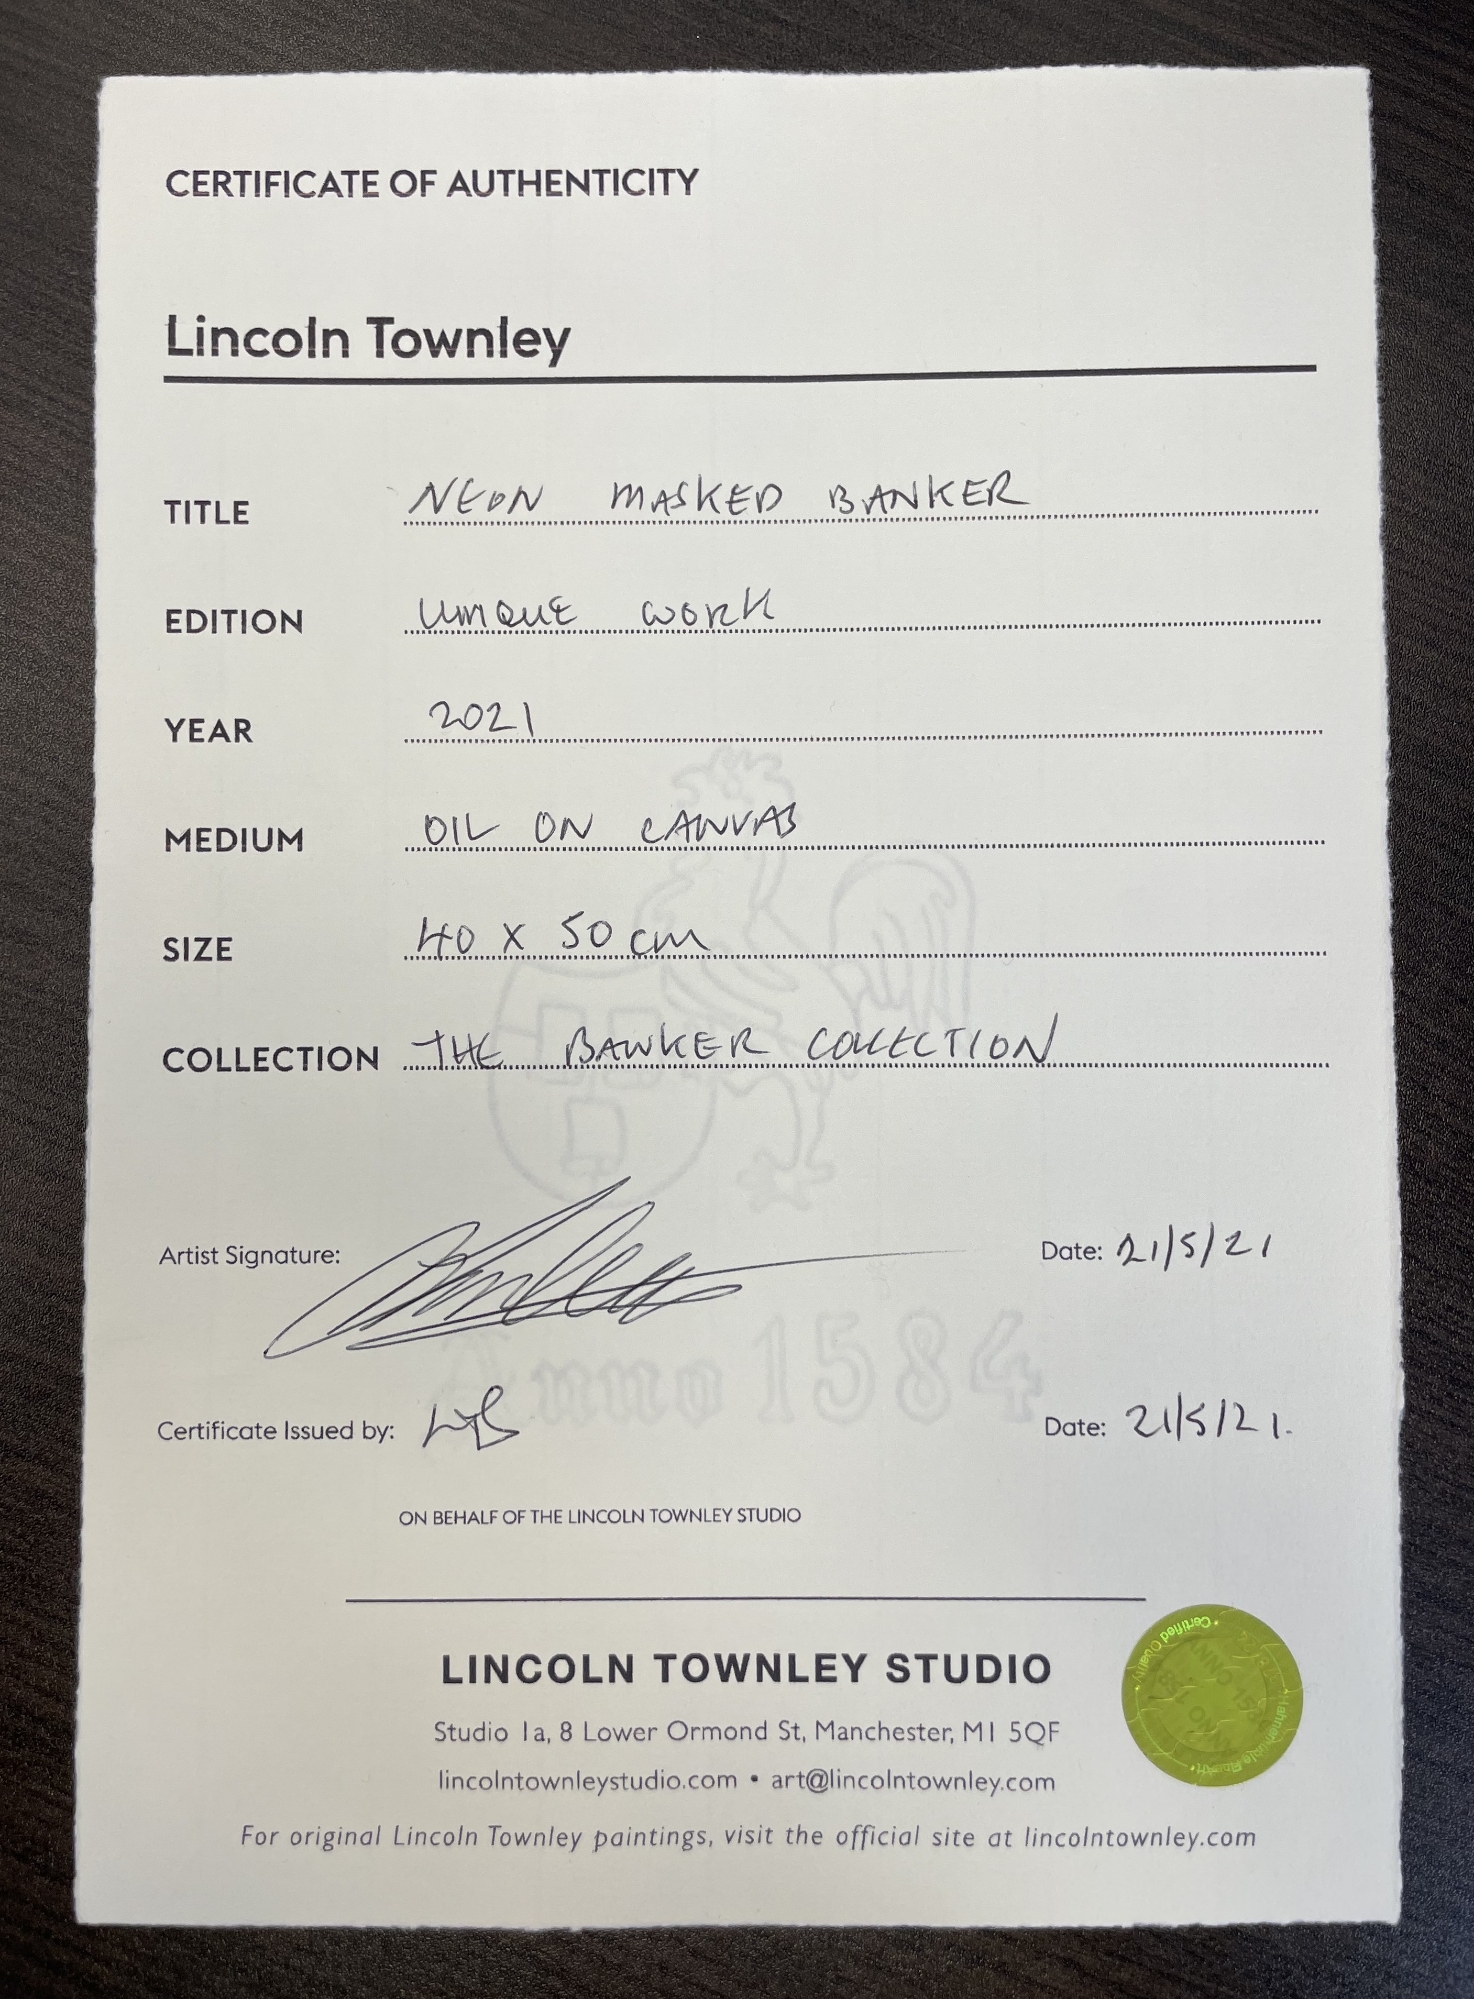 CERTIFICATE OF AUTHENTICITY
Lincoln Townley
TITLE NEON MASKED BANKER
EDITION UNIQUE WORK
YEAR 2021
MEDIUM OIL ON CANVAS
SIZE 40 X 50 cm
COLLECTION THE BANKER COLLECTION
Artist Signature: Date: 21/5/21
Anno 1584
Certificate Issued by: Date: 21/5/21.
ON BEHALF OF THE LINCOLN TOWNLEY STUDIO
LINCOLN TOWNLEY STUDIO
Studio 1a, 8 Lower Ormond St, Manchester, M1 5QF
lincolntownleystudio.com • art@lincolntownley.com
For original Lincoln Townley paintings, visit the official site at lincolntownley.com
• Certified Quality • Hahnemühle FineArt
ANNO 1584